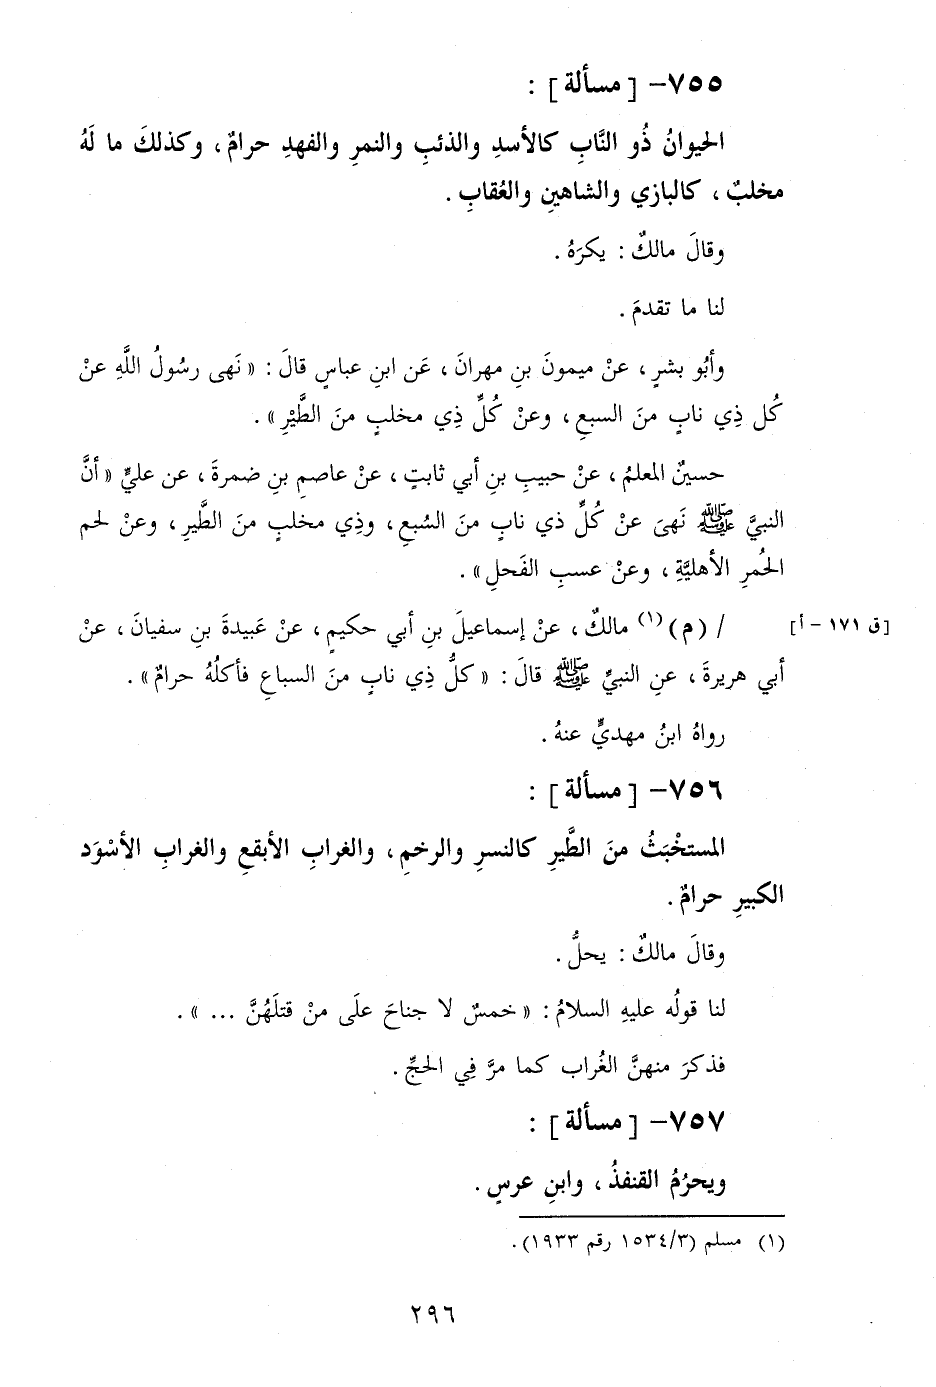 ٧٥٥- [ مسألة ] :
الحيوانُ ذُو النَّابِ كالأسدِ والذئبِ والنمرِ والفهدِ حرامٌ ، وكذلكَ ما لَهُ
مخلبٌ ، كالبازي والشاهينِ والعُقابِ .
وقالَ مالكٌ : يكرَهُ .
لنا ما تقدمَ .
وأبُو بشرٍ ، عنْ ميمونَ بنِ مهرانَ ، عَن ابنِ عباسٍ قالَ : « نَهى رسُولُ اللَّهِ عنْ
كُل ذِي نابٍ منَ السبعِ ، وعنْ كُلِّ ذِي مخلبٍ منَ الطَّيْرِ » .
حسينٌ المعلمُ ، عنْ حبيبِ بنِ أبي ثابتٍ ، عنْ عاصمِ بنِ ضمرةَ ، عن عليٍّ « أنَّ
النبيَّ ﷺ نَهىَ عنْ كُلِّ ذي نابٍ منَ السُبعِ ، وذِي مخلبٍ منَ الطَّيرِ ، وعنْ لحم
الحُمرِ الأهليَّةِ ، وعنْ عسبِ الفَحلِ » .
[ق ١٧١ - أ] / (م)(١) مالكٌ ، عنْ إسماعيلَ بنِ أبي حكيمٍ ، عنْ عَبيدةَ بنِ سفيانَ ، عنْ
أبي هريرةَ ، عنِ النبيِّ ﷺ قالَ : « كلُّ ذِي نابٍ منَ السباعِ فأكلُهُ حرامٌ » .
رواهُ ابنُ مهديٍّ عنهُ .
٧٥٦- [ مسألة ] :
المستخْبَثُ منَ الطَّيرِ كالنسرِ والرخمِ ، والغرابِ الأبقعِ والغرابِ الأسْوَد
الكبيرِ حرامٌ .
وقالَ مالكٌ : يحلُّ .
لنا قولُه عليهِ السلامُ : « خمسٌ لا جناحَ علَى منْ قتلَهُنَّ ... » .
فذكرَ منهنَّ الغُراب كما مرَّ فِي الحجِّ .
٧٥٧- [ مسألة ] :
ويحرُمُ القنفذُ ، وابنِ عرسٍ .
(١) مسلم (١٥٣٤/٣ رقم ١٩٣٣) .
٢٩٦